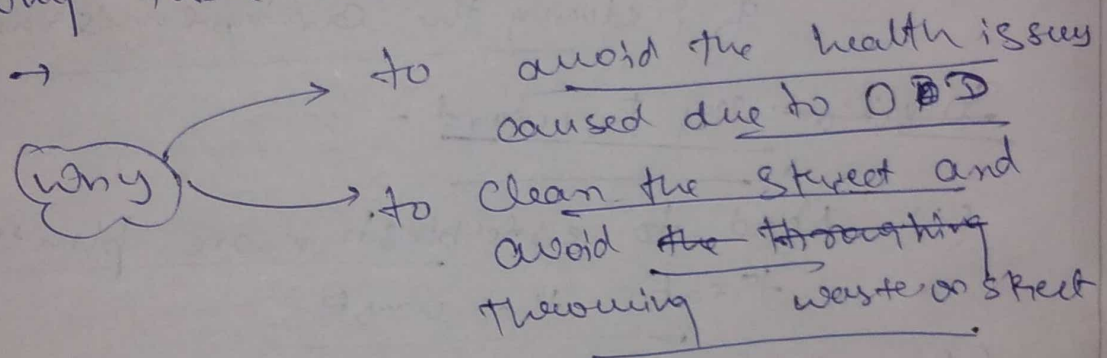 →
to avoid the health issues
caused due to OD
Why
to clean the street and
avoid the throughing
throwing waste on street.